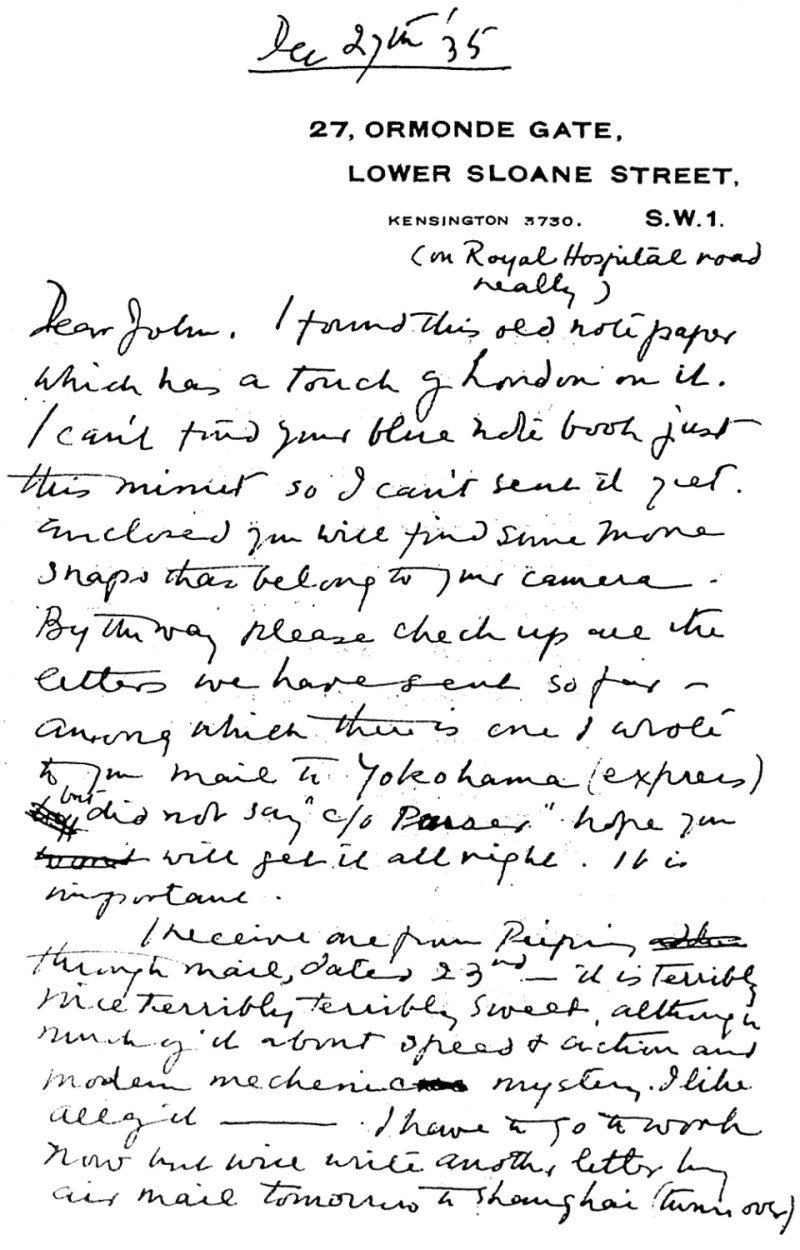 Dec 27th '35
27, ORMONDE GATE,
LOWER SLOANE STREET,
KENSINGTON 3730. S.W.1.
(on Royal Hospital road
really)
Dear John. I found this old note paper
which has a touch of London on it.
I can't find your blue note book just
this minute so I can't send it yet.
Enclosed you will find some more
snaps that belong to your camera.
By the way please check up all the
letters we have sent so far –
among which there is one I wrote
to you mail to Yokohama (express)
but did not say "c/o Purser" hope you
will get it all right. It is
important.
I receive one from Peiping
through mail, dated 23rd — it is terribly
nice terribly terribly sweet, although
much of it about speed & action and
modern mechenic mystery. I like
all of it ——— . I have to go to work
now but will write another letter by
air mail tomorrow to Shanghai (turn over)